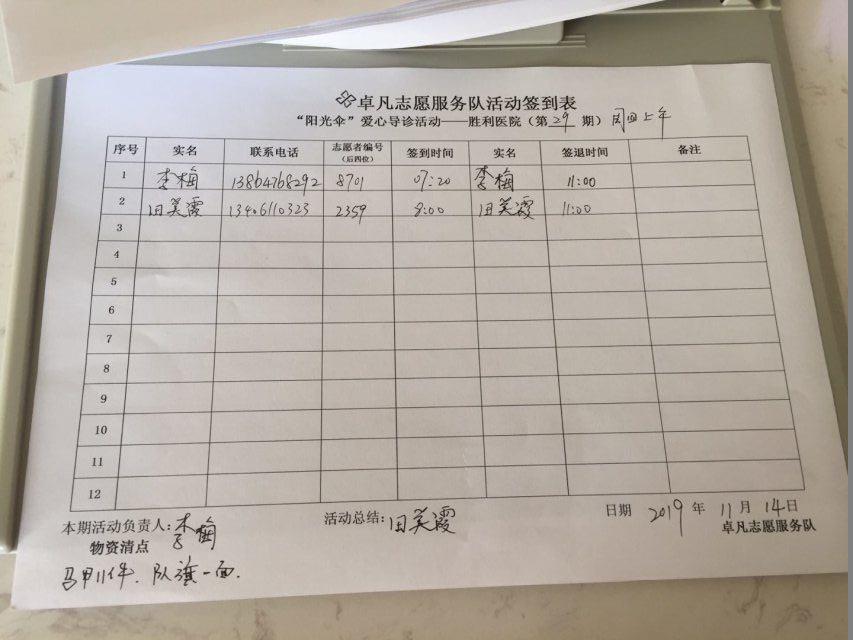 卓凡志愿服务队活动签到表
“阳光伞”爱心导诊活动——胜利医院（第29期）周四上午
序号 实名 联系电话 志愿者编号（后四位） 签到时间 实名 签退时间 备注
1 李梅 13864768292 8701 07:20 李梅 11:00
2 田美霞 13406110323 2359 8:00 田美霞 11:00
3
4
5
6
7
8
9
10
11
12
本期活动负责人：李梅 活动总结：田美霞 日期 2019年11月14日
物资清点 卓凡志愿服务队
马甲11件、队旗一面.